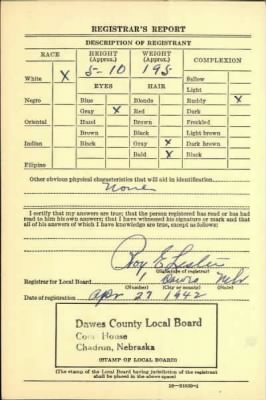 REGISTRAR'S REPORT
DESCRIPTION OF REGISTRANT
RACE HEIGHT (Approx.) WEIGHT (Approx.) COMPLEXION
White X 5-10 195 Sallow
EYES HAIR Light
Negro Blue Blonde Ruddy X
Gray X Red Dark
Oriental Hazel Brown Freckled
Brown Black Light brown
Indian Black Gray X Dark brown
Bald X Black
Filipino
Other obvious physical characteristics that will aid in identification
None
I certify that my answers are true; that the person registered has read or has had
read to him his own answers; that I have witnessed his signature or mark and that
all of his answers of which I have knowledge are true, except as follows:
Roy E
(Signature of registrar)
Registrar for Local Board 1 Dawes Nebr
(Number) (City or county) (State)
Date of registration Apr 27 1942
Dawes County Local Board
Court House
Chadron, Nebraska
(STAMP OF LOCAL BOARD)
(The stamp of the Local Board having jurisdiction of the registrant
shall be placed in the above space)